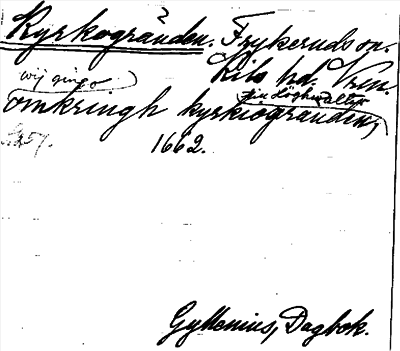 Kyrkogränden. Frykeruds sn.
Kils hd. Vrm.
wij gingo
omkringh kyrkiogränden,
S. 257. 1662.
Gyllenius, Dagbok.